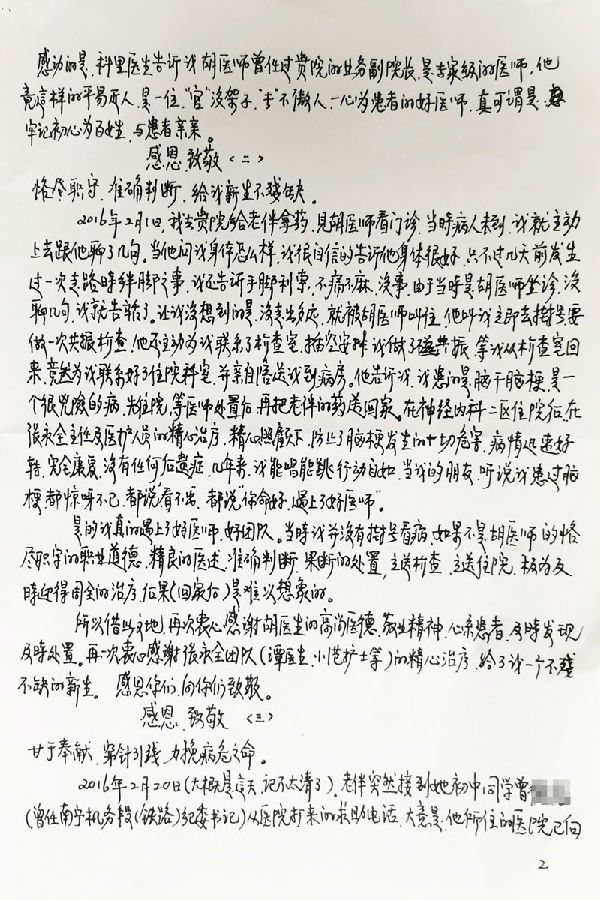 感动的是,科里医生告诉我胡医师曾任过贵院的业务副院长,是专家级的医师,他
竟这样的平易近人,是一位“官”没架子,“专”不傲人,一心为患者的好医师,真可谓是
牢记初心为百姓,与患者亲亲。
感恩,致敬(二)
恪尽职守,准确判断,给我新生不残缺。
2016年2月1日,我去贵院给老伴拿药,见胡医师看门诊,当时病人未到,我就主动
上去跟他聊了几句。当他问我身体怎么样,我很自信的告诉他身体很好,只不过几天前发生
过一次走路时绊脚之事,我还告诉手脚利索,不痛不麻,没事,由于当时是胡医师坐诊,没
聊几句,我就告辞了。让我没想到的是,没走出多远,就被胡医师叫住,他叫我立即去挂号要
做一次共振检查,他还主动为我联系了检查室,插空安排我做了磁共振,等我从检查室回
来,竟然为我联系好了住院科室,并亲自陪送我到病房。他告诉我,我患的是脑干脑梗,是一
个很凶险的病,先住院,等医师处置后,再把老伴的药送回家。在神经内科二区住院后,在
张永全主任及医护人员的精心治疗,精心照顾下,防止了脑梗发生的十切危害,病情迅速好
转,完全康复,没有任何后遗症,几年来,我能唱能跳行动自如,当我的朋友,听说我患过脑
梗,都惊呀不已,都说“看不出”,都说“你命好,遇上了好医师”。
是的我真的遇上了好医师,好团队。当时我并没有挂号看病,如果不是胡医师的恪
尽职守的职业道德,精良的医述,准确判断,果断的处置,立送检查,立送住院,极为及
时还得周全的治疗,后果(回家后)是难以想象的。
所以借此之地,再次衷心感谢胡医生的高尚医德,敬业精神,心系患者,及时发现
及时处置。再一次衷心感谢张永全团队(谭医生,小范护士等)的精心治疗,给了我一个不残
不缺的新生。感恩你们,向你们致敬。
感恩,致敬(三)
甘于奉献,穿针引线,力挽病危之命。
2016年2月20日(大概是这天,记不太清了),老伴突然接到她初中同学曾
(曾任南宁机务段(铁路)纪委书记)从医院打来的求助电话,大意是,他所住的医院已向
2